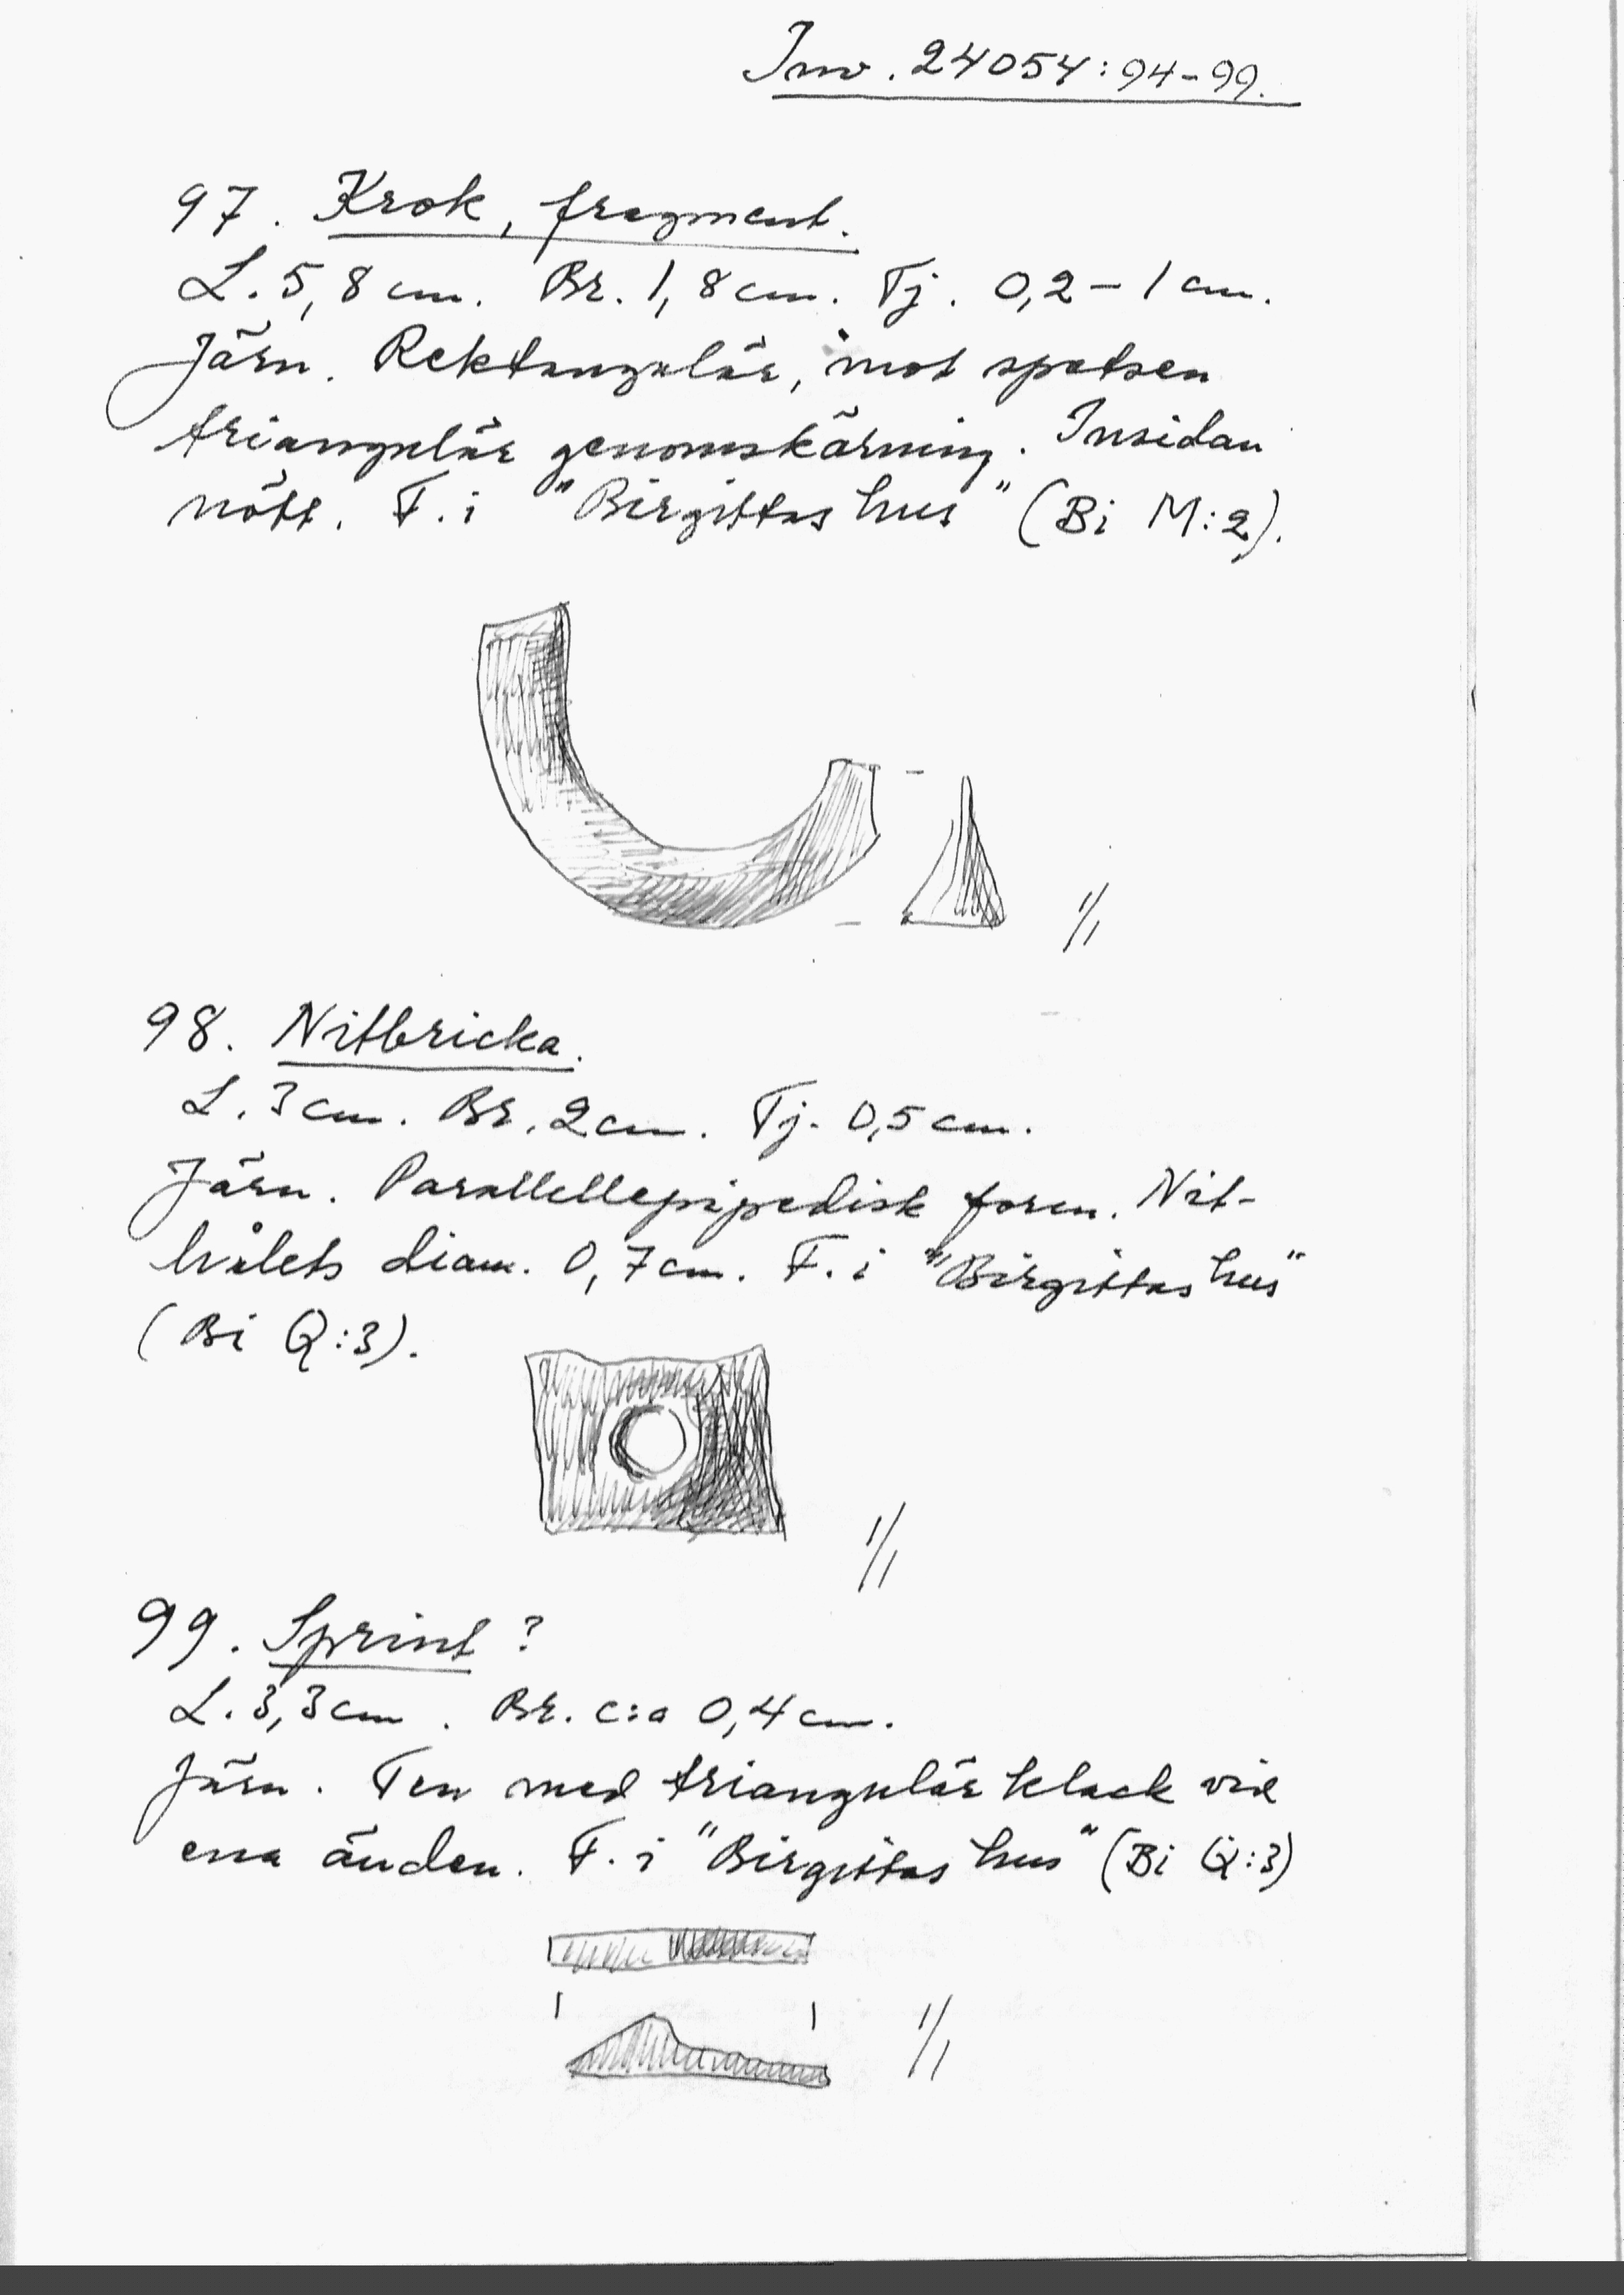 Inv. 24054:94-99.
97. Krok, fragment.
L. 5,8 cm. Br. 1,8 cm. Tj. 0,2-1 cm.
Järn. Rektangulär, mot spetsen
triangulär genomskärning. Insidan
nött. F. i "Birgittas hus" (Bi M:2).
1/1
98. Nitbricka.
L. 3 cm. Br. 2 cm. Tj. 0,5 cm.
Järn. Parallellepipedisk form. Nit-
hålets diam. 0,7 cm. F. i "Birgittas hus"
(Bi Q:3).
1/1
99. Sprint?
L. 3,3 cm. Br. c:a 0,4 cm.
Järn. Ten med triangulär klack vid
ena änden. F. i "Birgittas hus" (Bi Q:3)
1/1